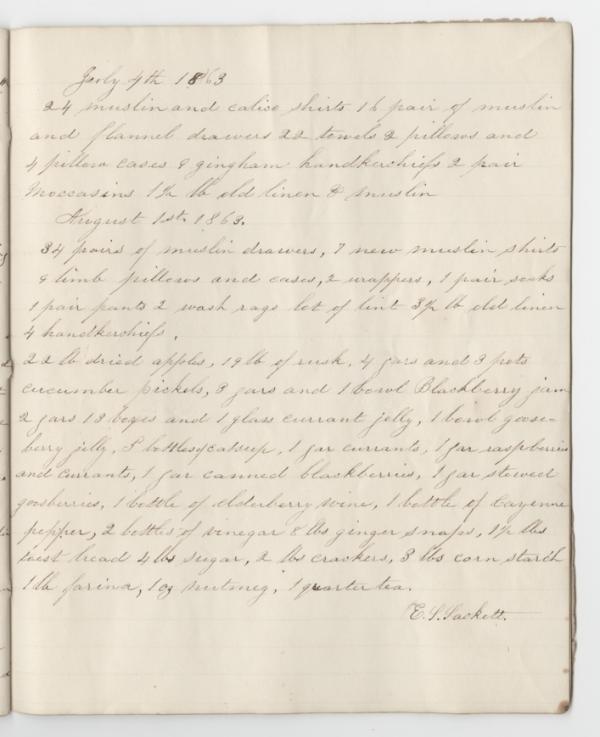 July 4th 1863
24 muslin and calico shirts 16 pair of muslin
and flannel drawers 22 towels 2 pillows and
4 pillow cases 9 gingham handkerchiefs 2 pair
Moccasins 1½ lb old linen & muslin
August 1st. 1863.
34 pairs of muslin drawers, 7 new muslin shirts
9 limb pillows and cases, 2 wrappers, 1 pair socks
1 pair pants 2 wash rags lot of lint 3½ lb old linen
4 handkerchiefs.
22 lb dried apples, 19 lb of rusk, 4 jars and 3 pots
cucumber pickels, 3 jars and 1 bowl Blackberry jam
2 jars 13 boxes and 1 glass currant jelly, 1 bowl goose-
berry jelly, 5 bottles of catsup, 1 jar currants, 1 jar raspberries
and currants, 1 jar canned blackberries, 1 jar stewed
goosberries, 1 bottle of elderberry wine, 1 bottle of Cayenne
pepper, 2 bottles of vinegar 8 lbs ginger snaps, 1½ lbs
bread 4 lbs sugar, 2 lbs crackers, 3 lbs corn starch
1 lb farina, 1 oz nutmeg, 1 quarter tea.
E. S. Sackett.